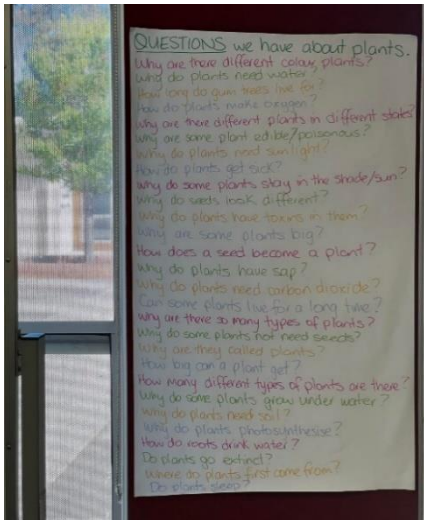 QUESTIONS we have about plants.
Why are there different colour plants?
Why do plants need water?
How long do gum trees live for?
How do plants make oxygen?
Why are there different plants in different states?
Why are some plant edible/poisonous?
Why do plants need sunlight?
How do plants get sick?
Why do some plants stay in the shade/sun?
Why do seeds look different?
Why do plants have toxins in them?
Why are some plants big?
How does a seed become a plant?
Why do plants have sap?
Why do plants need carbon dioxide?
Can some plants live for a long time?
Why are there so many types of plants?
Why do some plants not need seeds?
Why are they called plants?
How big can a plant get?
How many different types of plants are there?
Why do some plants grow under water?
Why do plants need soil?
Why do plants photosynthesise?
How do roots drink water?
Do plants go extinct?
Where do plants first come from?
Do plants sleep?